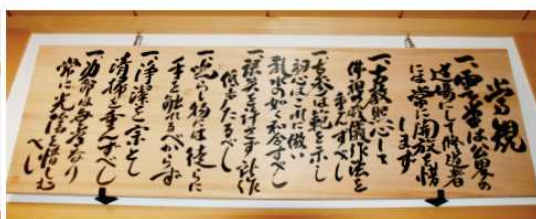 堂規
一、雲堂は公界の
道場にして修道者
には常に開放を惜
します
一、古教照心して
佛祖の威儀作法を
重んずべし
一、古参は範を示し
初心はこれに倣い
乳水の如く和合すべし
一、談笑を許さず
たるべし
一、物は徒らに
手を触れるべからず
一、浄潔を宗とし
清掃を重んずべし
一、命は無常なり
常に光陰を惜しむ
べし